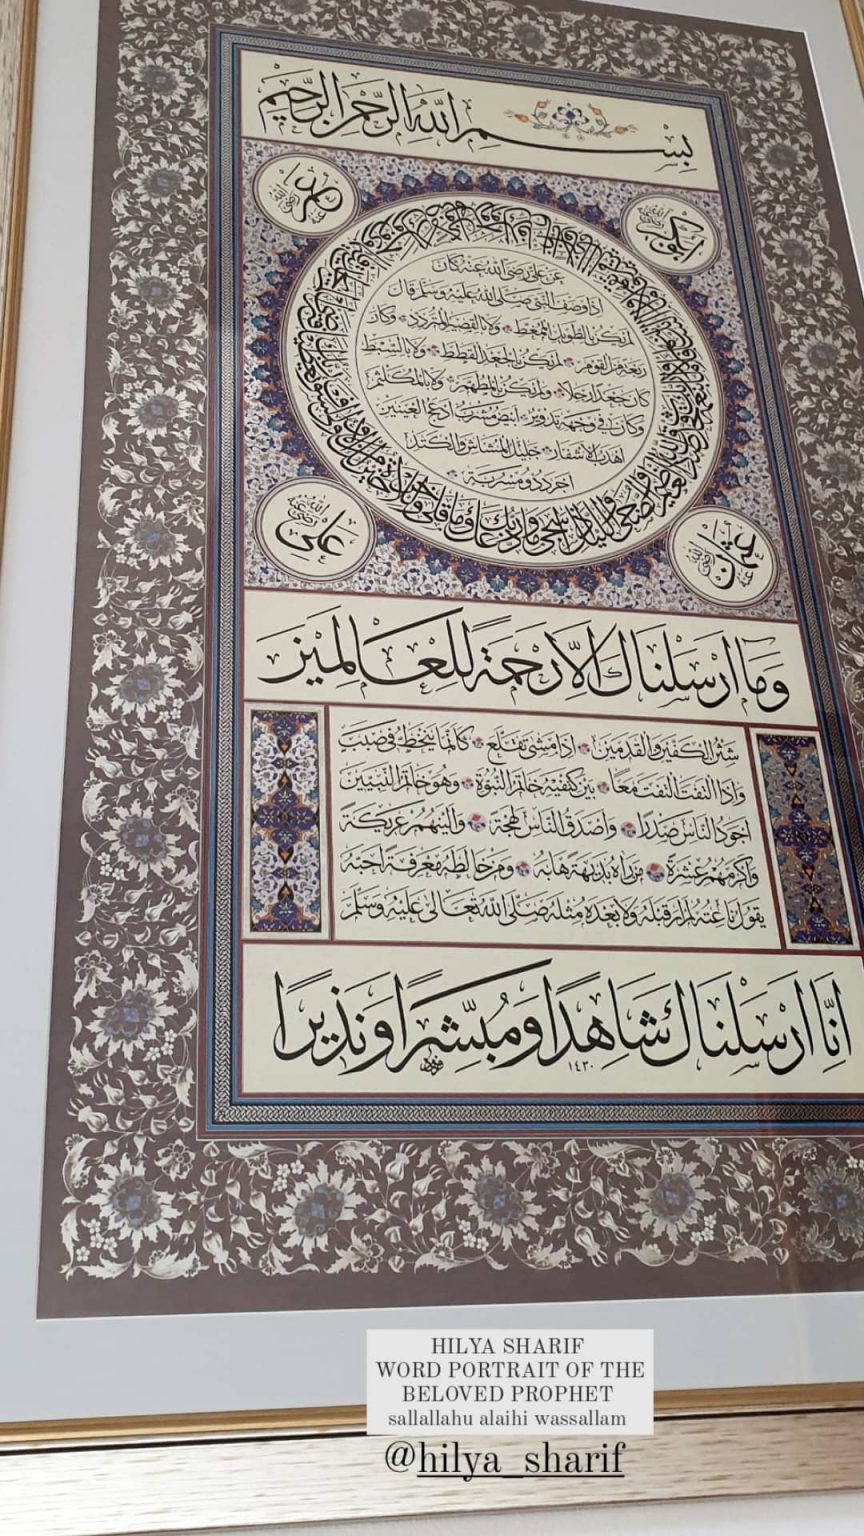 بِسْمِ اللهِ الرَّحْمٰنِ الرَّحِيمِ
ابوبكر رضى الله عنه
عمر رضى الله عنه
والضحى والليل اذا سجى ما ودعك ربك وما قلى وللاخرة خير لك من الاولى
عن على رضى الله عنه كان
اذا وصف النبى صلى الله عليه وسلم قال
لم يكن بالطويل الممغط ولا بالقصير المتردد وكان
ربعة من القوم لم يكن بالجعد القطط ولا بالسبط
كان جعدا رجلا ولم يكن بالمطهم ولا بالمكلثم
وكان فى وجهه تدوير ابيض مشرب ادعج العينين
اهدب الاشفار جليل المشاش والكتد
اجرد ذو مسربة
عثمان رضى الله عنه
على رضى الله عنه
وَمَا اَرْسَلْنَاكَ اِلَّا رَحْمَةً لِلْعَالَمِينَ
شثن الكفين والقدمين اذا مشى تقلع كانما ينحط فى صبب
واذا التفت التفت معا بين كتفيه خاتم النبوة وهو خاتم النبيين
اجود الناس صدرا واصدق الناس لهجة والينهم عريكة
واكرمهم عشرة من راه بديهة هابه ومن خالطه معرفة احبه
يقول ناعته لم ار قبله ولا بعده مثله صلى الله تعالى عليه وسلم
اِنَّا اَرْسَلْنَاكَ شَاهِدًا وَمُبَشِّرًا وَنَذِيرًا
١٤٣٠
HILYA SHARIF
WORD PORTRAIT OF THE
BELOVED PROPHET
sallallahu alaihi wassallam
@hilya_sharif